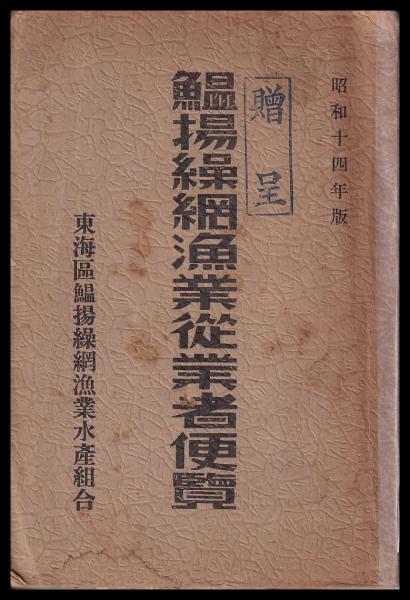 昭和十四年版
贈呈
鰮揚繰網漁業從業者便覽
東海區鰮揚繰網漁業水產組合